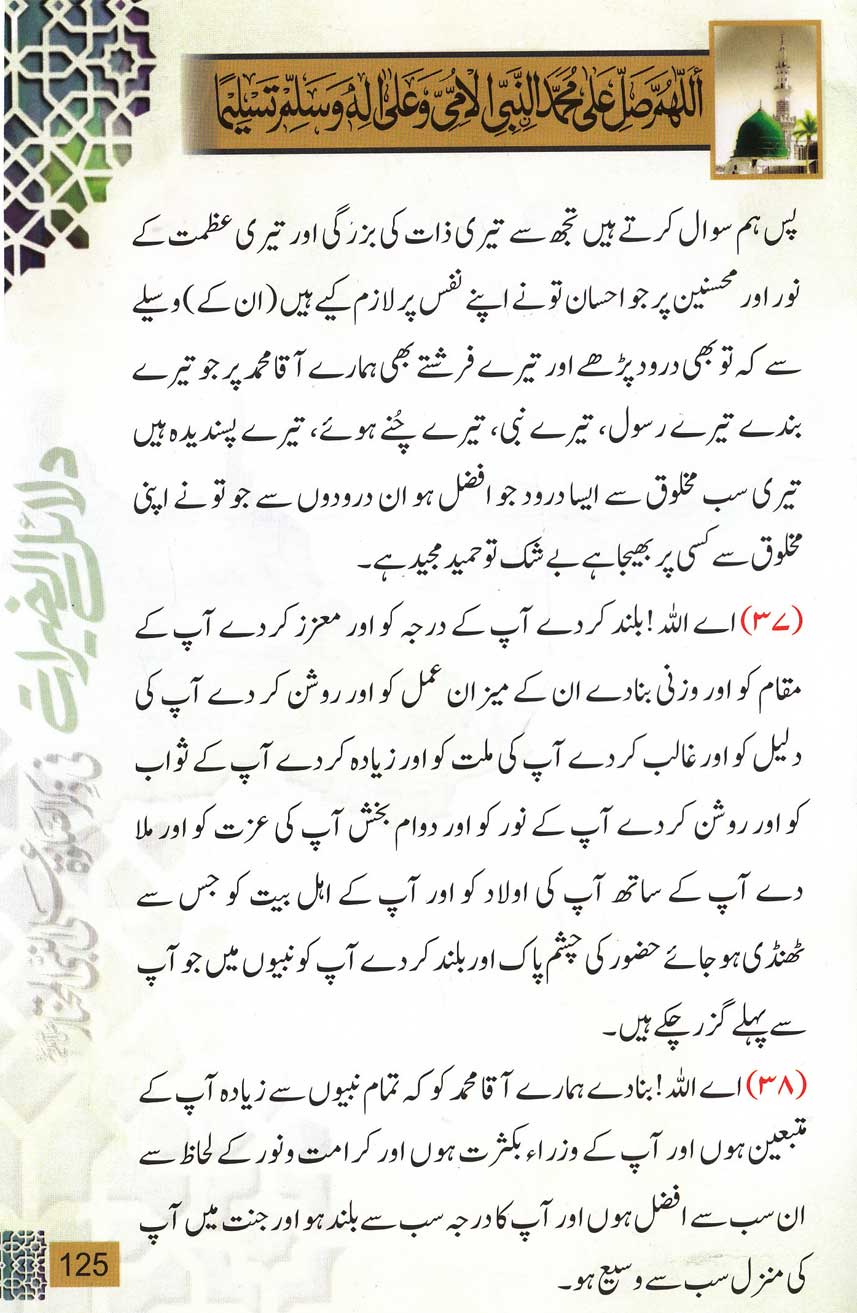 اَللّٰهُمَّ صَلِّ عَلٰى مُحَمَّدِ النَّبِىِّ الْاُمِّىِّ وَعَلٰى اٰلِهٖ وَسَلِّمْ تَسْلِيْمًا
پس ہم سوال کرتے ہیں تجھ سے تیری ذات کی بزرگی اور تیری عظمت کے
نور اور محسنین پر جو احسان تو نے اپنے نفس پر لازم کیے ہیں (ان کے) وسیلے
سے کہ تو بھی درود پڑھے اور تیرے فرشتے بھی ہمارے آقا محمد پر جو تیرے
بندے تیرے رسول، تیرے نبی، تیرے چُنے ہوئے، تیرے پسندیدہ ہیں
تیری سب مخلوق سے ایسا درود جو افضل ہو ان درودوں سے جو تو نے اپنی
مخلوق سے کسی پر بھیجا ہے بے شک تو حمید مجید ہے۔
(۳۷) اے اللہ! بلند کر دے آپ کے درجہ کو اور معزز کر دے آپ کے
مقام کو اور وزنی بنا دے ان کے میزان عمل کو اور روشن کر دے آپ کی
دلیل کو اور غالب کر دے آپ کی ملت کو اور زیادہ کر دے آپ کے ثواب
کو اور روشن کر دے آپ کے نور کو اور دوام بخش آپ کی عزت کو اور ملا
دے آپ کے ساتھ آپ کی اولاد کو اور آپ کے اہل بیت کو جس سے
ٹھنڈی ہو جائے حضور کی چشم پاک اور بلند کر دے آپ کو نبیوں میں جو آپ
سے پہلے گزر چکے ہیں۔
(۳۸) اے اللہ! بنا دے ہمارے آقا محمد کو کہ تمام نبیوں سے زیادہ آپ کے
متبعین ہوں اور آپ کے وزراء بکثرت ہوں اور کرامت و نور کے لحاظ سے
ان سب سے افضل ہوں اور آپ کا درجہ سب سے بلند ہو اور جنت میں آپ
کی منزل سب سے وسیع ہو۔
دلائل الخیرات
125